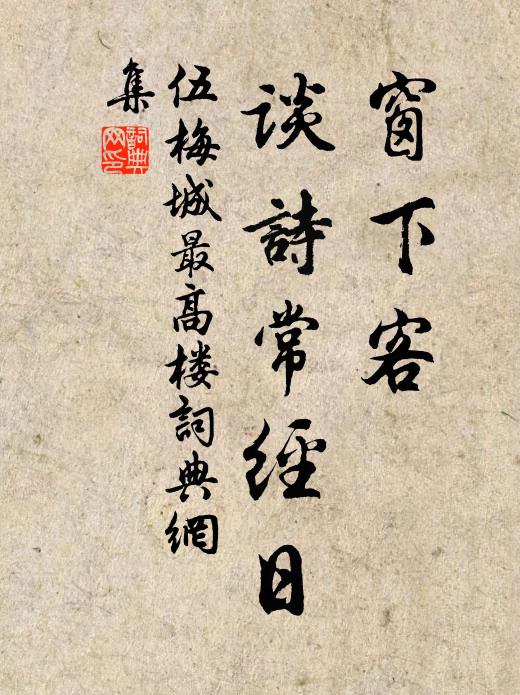 窗下客
談詩常經日
伍梅城最高楼詞典網
集
詞典
网印